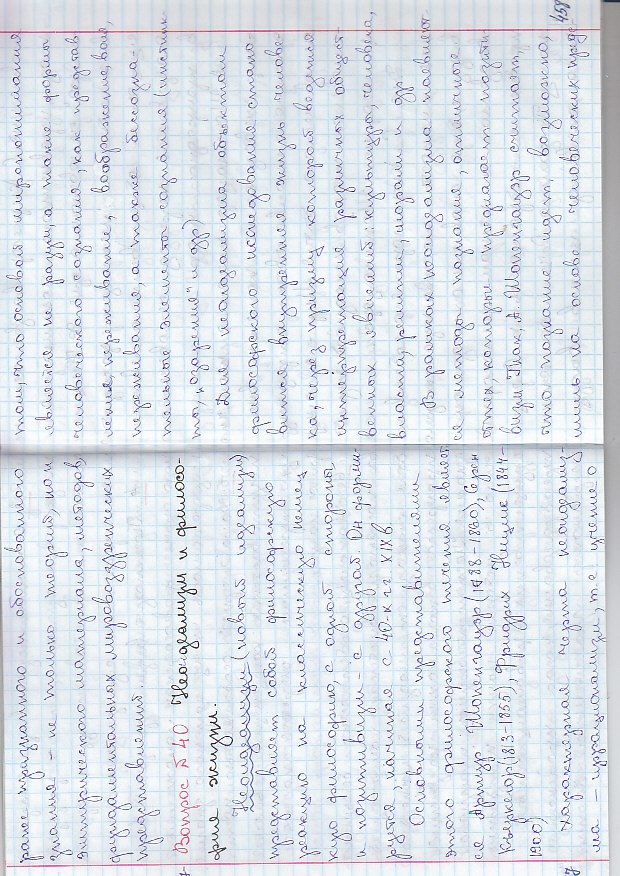 ранее признанного и обоснованного
знания – не только теорий, но и
эмпирического материала, методов,
фундаментальных мировоззренческих
представлений.
Вопрос №40 Неоидеализм и филосо-
фия жизни.
Неоидеализм (новый идеализм)
представляет собой философскую
реакцию на классическую немец-
кую философию, с одной стороны,
и позитивизм – с другой. Он форми-
руется, начиная с 40-х гг XIX в
Основными представителями
этого философского течения являют
ся Артур Шопенгауэр (1788-1860), Серен
Кьеркегор (1813-1855), Фридрих Ницше (1844-
1900)
Характерная черта неоидеализ-
ма – иррационализм, т.е учение о
том, что основой миропонимания
является не разум, а такие формы
человеческого сознания, как представ
ления, переживание, воображение, воля,
переживания, а также бессозна-
тельные элементы сознания (инстинк
ты, „озарения" и др)
Для неоидеализма объектом
философского исследования стано-
вится внутренняя жизнь челове-
ка, через призму которой ведется
интерпретация различных общест-
венных явлений: культуры, человека,
власти, религии, морали и др
В рамках неоидеализма появляют
ся методы познания, отличные
от тех, которые предлагает позити
визм. Так, А. Шопенгауэр считает,
что познание идет, возможно,
лишь на основе человеческих пред-
458